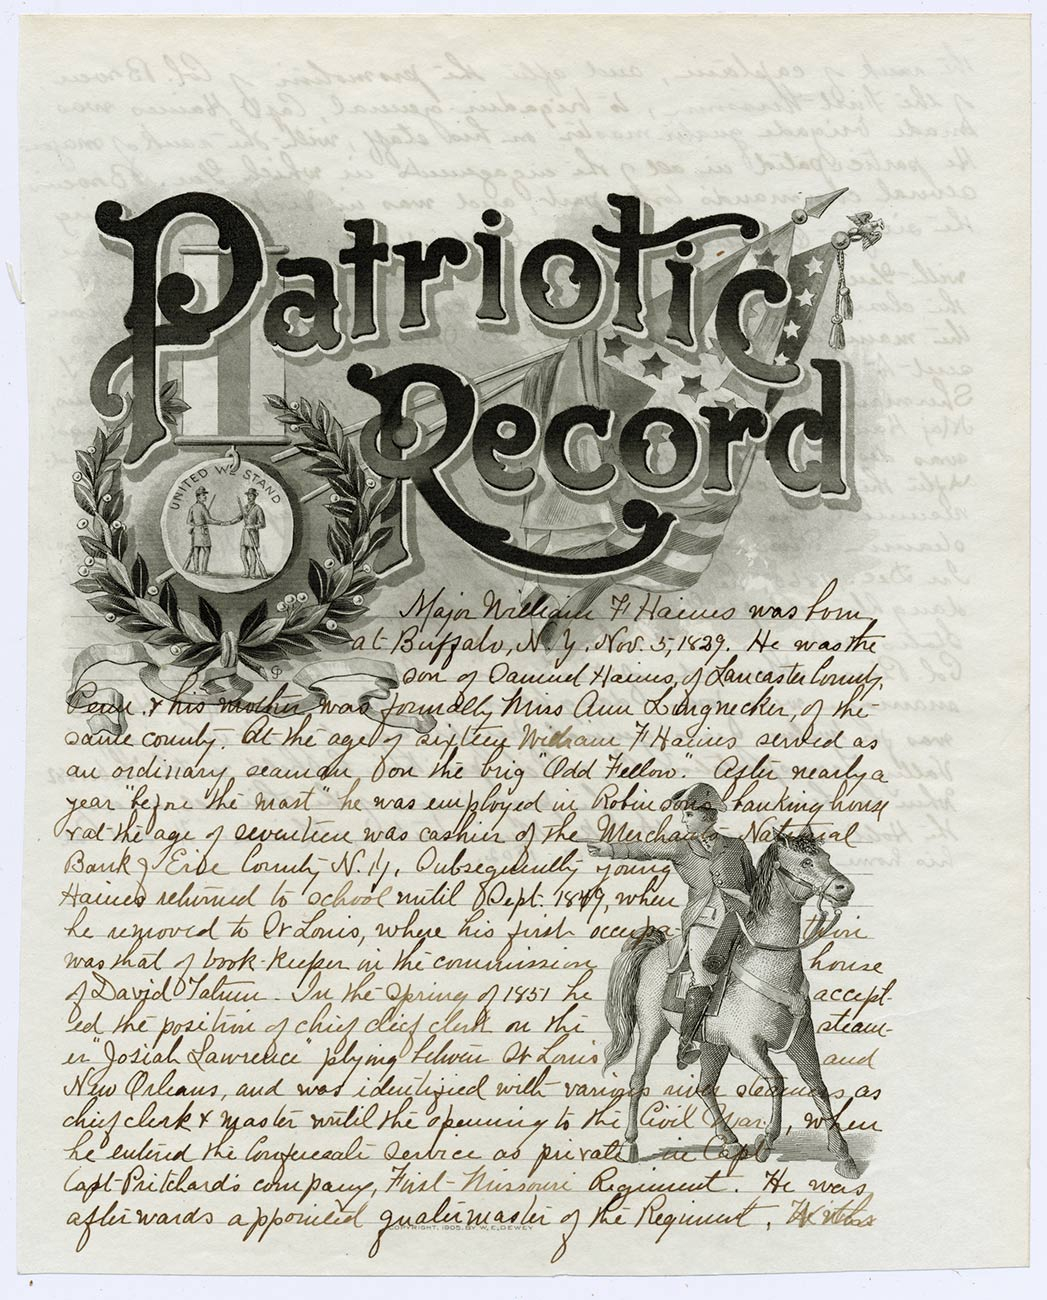 Patriotic
Record
UNITED WE STAND
Major William F Haines was born
at Buffalo, N. Y. Nov. 5, 1829. He was the
son of Samuel Haines, of Lancaster County,
Penn. & his mother was formally Miss Ann Longnecker, of the
same county. At the age of sixteen William F Haines served as
an ordinary seaman on the brig "Odd Fellow". After nearly a
year "before the mast" he was employed in Robinsons banking house
& at the age of seventeen was cashier of the Merchants National
Bank of Erie County N. Y. Subsequently young
Haines returned to school until Sept. 1849, when
he removed to St Louis, where his first occupa- tion
was that of book-keeper in the commission house
of David Tatum. In the Spring of 1851 he accept-
ed the position of chief clerk on the steam-
er "Josiah Lawrence" plying between St Louis and
New Orleans, and was identified with various river steamers, as
chief clerk & master until the opening to the Civil War, when
he entered the Confederate service as private in Capt
Capt Pritchards company, First Missouri Regiment. He was
afterwards appointed quatermaster of the Regiment,
COPYRIGHT, 1905, BY W. E. DEWEY